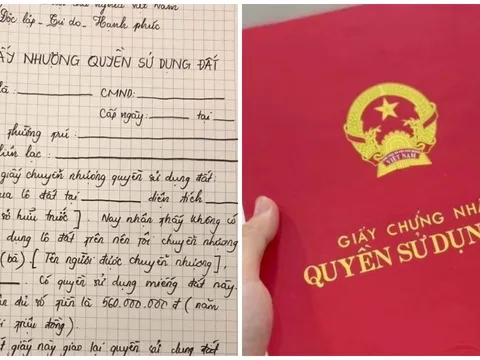 Độc lập - Tự do - Hạnh phúc
ẤY NHƯỢNG QUYỀN SỬ DỤNG ĐẤT
là: CMND:
Cấp ngày: tại
phường trú:
liên lạc:
giấy chuyển nhượng quyền sử dụng đất.
ua lô đất tại diện tích
sở hữu trước]. Nay nhận thấy không có
dụng lô đất trên nên tôi chuyển nhượng
(bà) [Tên người được chuyển nhượng],
Có quyền sử dụng miếng đất này.
ận đủ số tiền là 560.000.000 đ (năm
ơi triệu đồng).
t giấy này giao lại quyền sử dụng đất
VIỆT NAM
GIẤY CHỨNG NHẬ
QUYỀN SỬ DỤN